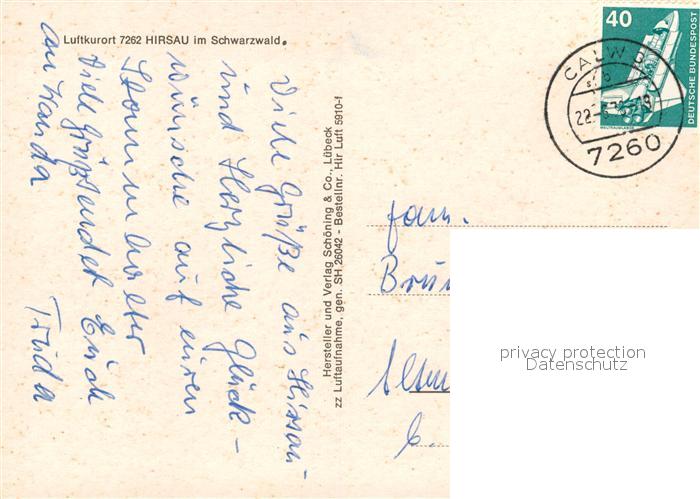 Luftkurort 7262 HIRSAU im Schwarzwald.
Viele Grüße aus Hirsau
und Herzliche Glück-
wünsche auf euren
Stammhalter
Viele Grüße sendet Euch
Truda
Hersteller und Verlag Schöning & Co., Lübeck
zz Luftaufnahme, gen. SH 26042 - Bestellnr. Hir Luft 5910-f
40
DEUTSCHE BUNDESPOST
WELTRAUMLABOR
CALW
7260
Fam.
privacy protection
Datenschutz